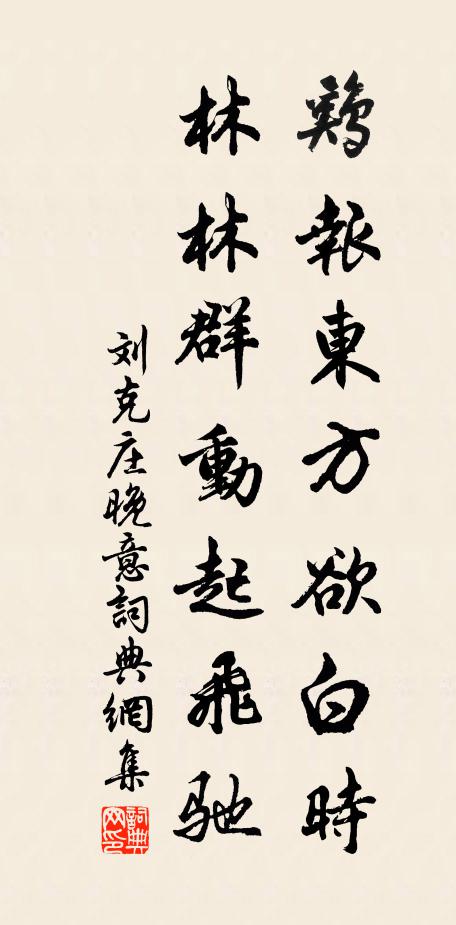 鷄報東方欲白時
林林群動起飛馳
刘克庄晚意詞典網集
詞典网印